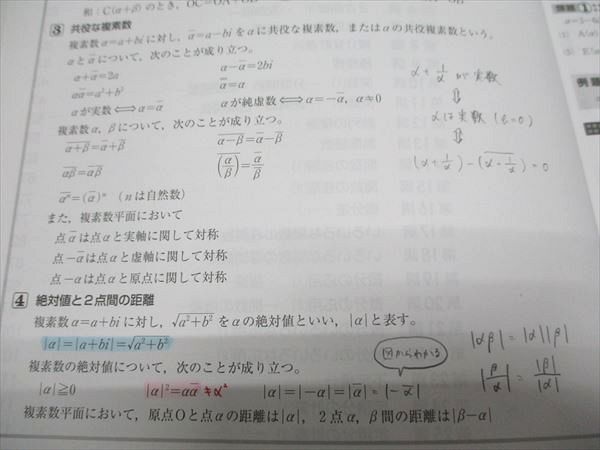 和：C(α+β)のとき，OC=OA+OB
3 共役な複素数
複素数α=a+biに対し，α̅=a−biをαに共役な複素数，またはαの共役複素数という。
αとα̅について，次のことが成り立つ。
α+α̅=2a α−α̅=2bi
αα̅=a²+b² α̿=α
αが実数⟺α=α̅ αが純虚数⟺α=−α̅，α≠0
複素数α，βについて，次のことが成り立つ。
\overline{α+β}=α̅+β̅ \overline{α−β}=α̅−β̅
\overline{αβ}=α̅β̅ \overline{(α/β)}=α̅/β̅
\overline{αⁿ}=(α̅)ⁿ (nは自然数)
また，複素数平面において
点α̅は点αと実軸に関して対称
点−α̅は点αと虚軸に関して対称
点−αは点αと原点に関して対称
α+1/α が実数
⇕
αは実数
⇕
4 絶対値と2点間の距離
複素数α=a+biに対し，√(a²+b²)をαの絶対値といい，|α|と表す。
|α|=|a+bi|=√(a²+b²)
複素数の絶対値について，次のことが成り立つ。
図からわかる
|α|≧0 |α|²=αα̅ ≠α² |α|=|−α|=|α̅|=|−α̅|
|αβ|=|α||β|
|β/α|=|β|/|α|
複素数平面において，原点Oと点αの距離は|α|，2点α，β間の距離は|β−α|
例題